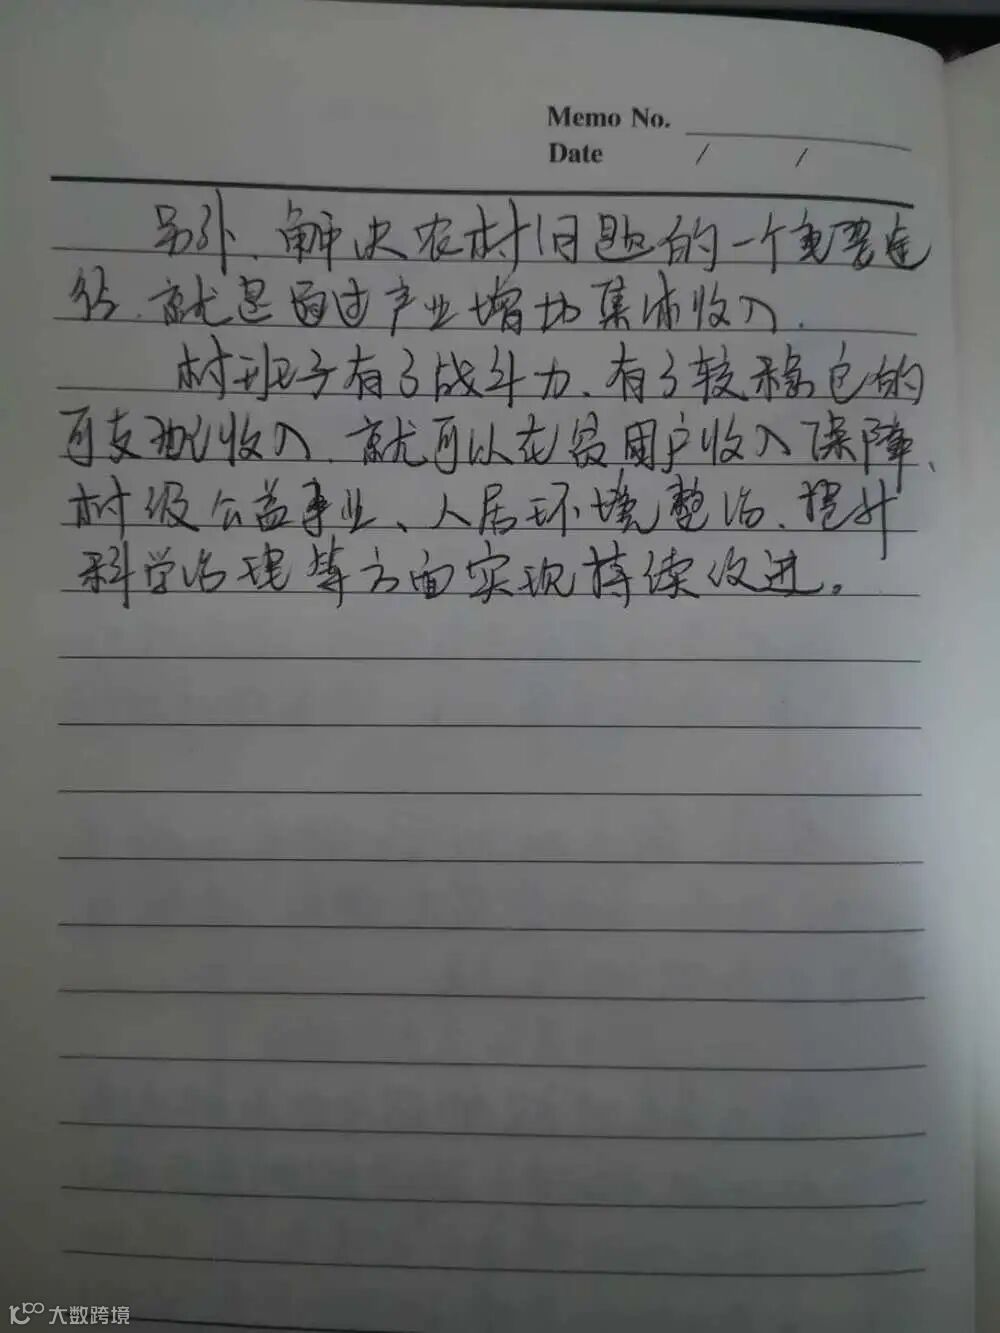 Memo No.
Date / /
另外、解决农村问题的一个重要途
径、就是通过产业增加集体收入.
村班子有了战斗力、有了较稳定的
可支配收入、就可以在贫困户收入保障、
村级公益事业、人居环境整治、提升
科学治理等方面实现持续改进。
大数跨境